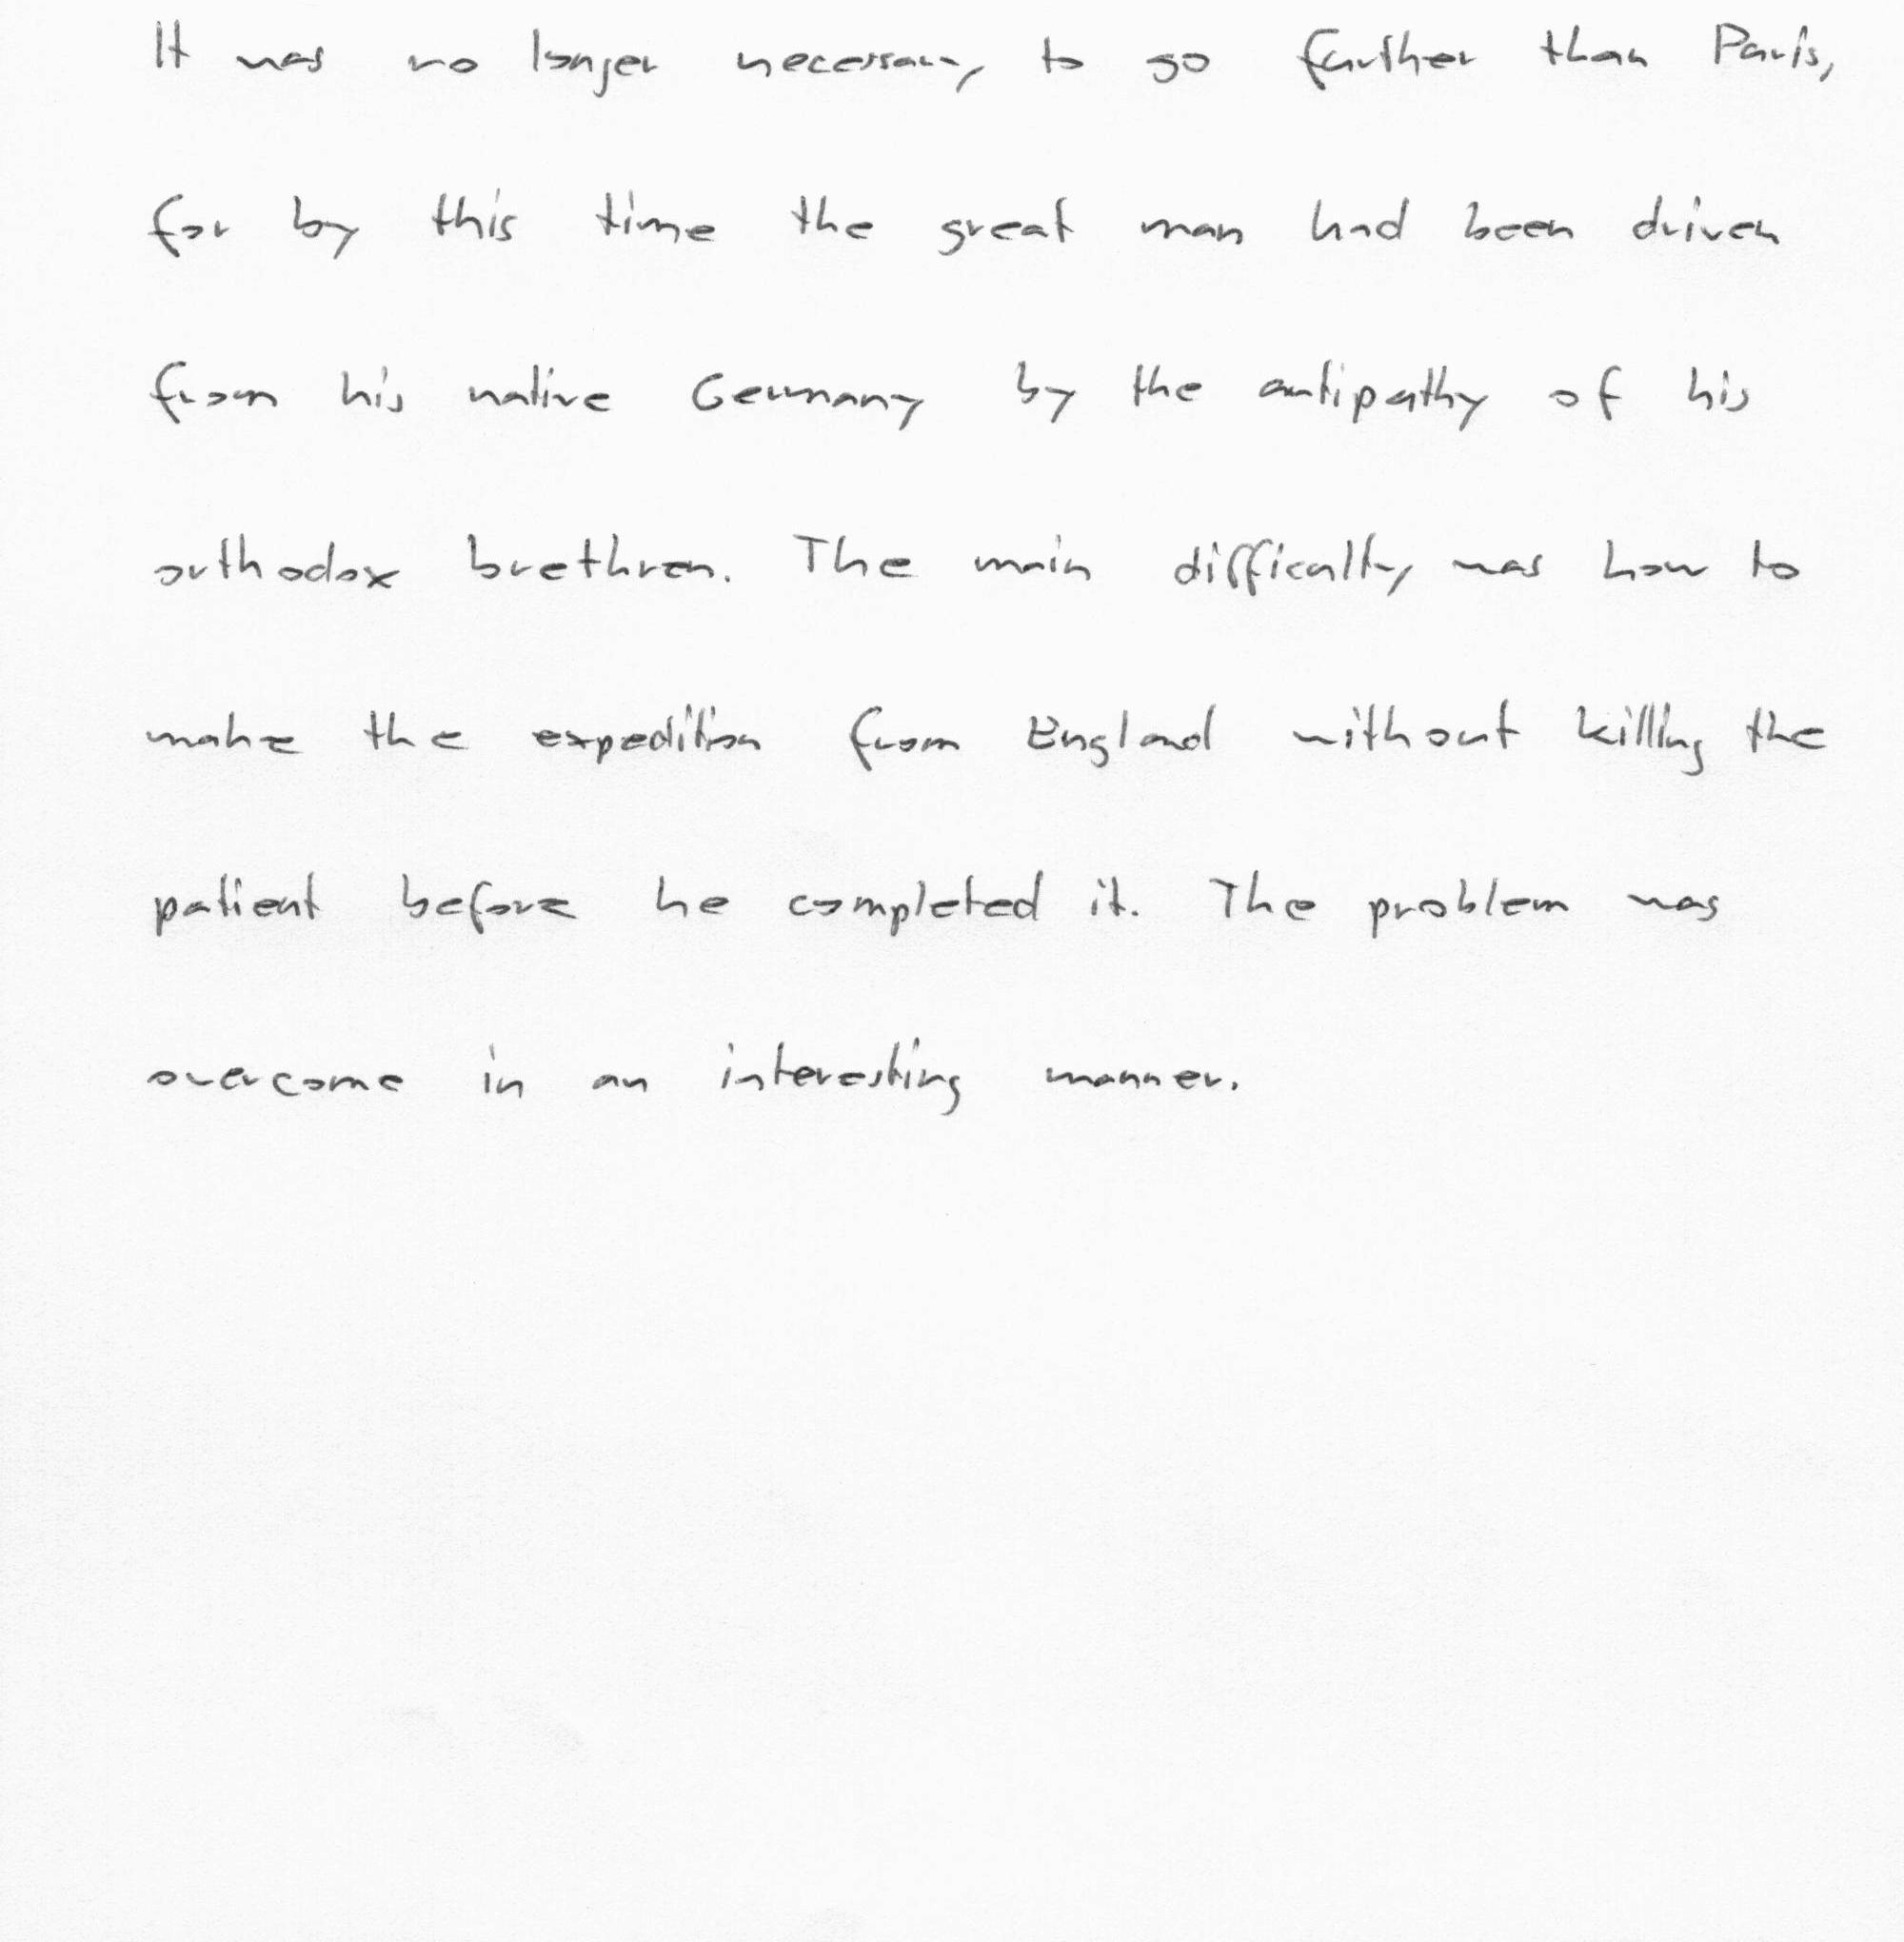 It was no longer necessary to go further than Paris,
for by this time the great man had been driven
from his native Germany by the antipathy of his
orthodox brethren. The main difficulty was how to
make the expedition from England without killing the
patient before he completed it. The problem was
overcome in an interesting manner.